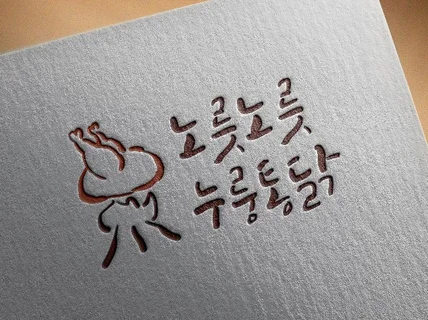 노릇노릇
누룽통닭